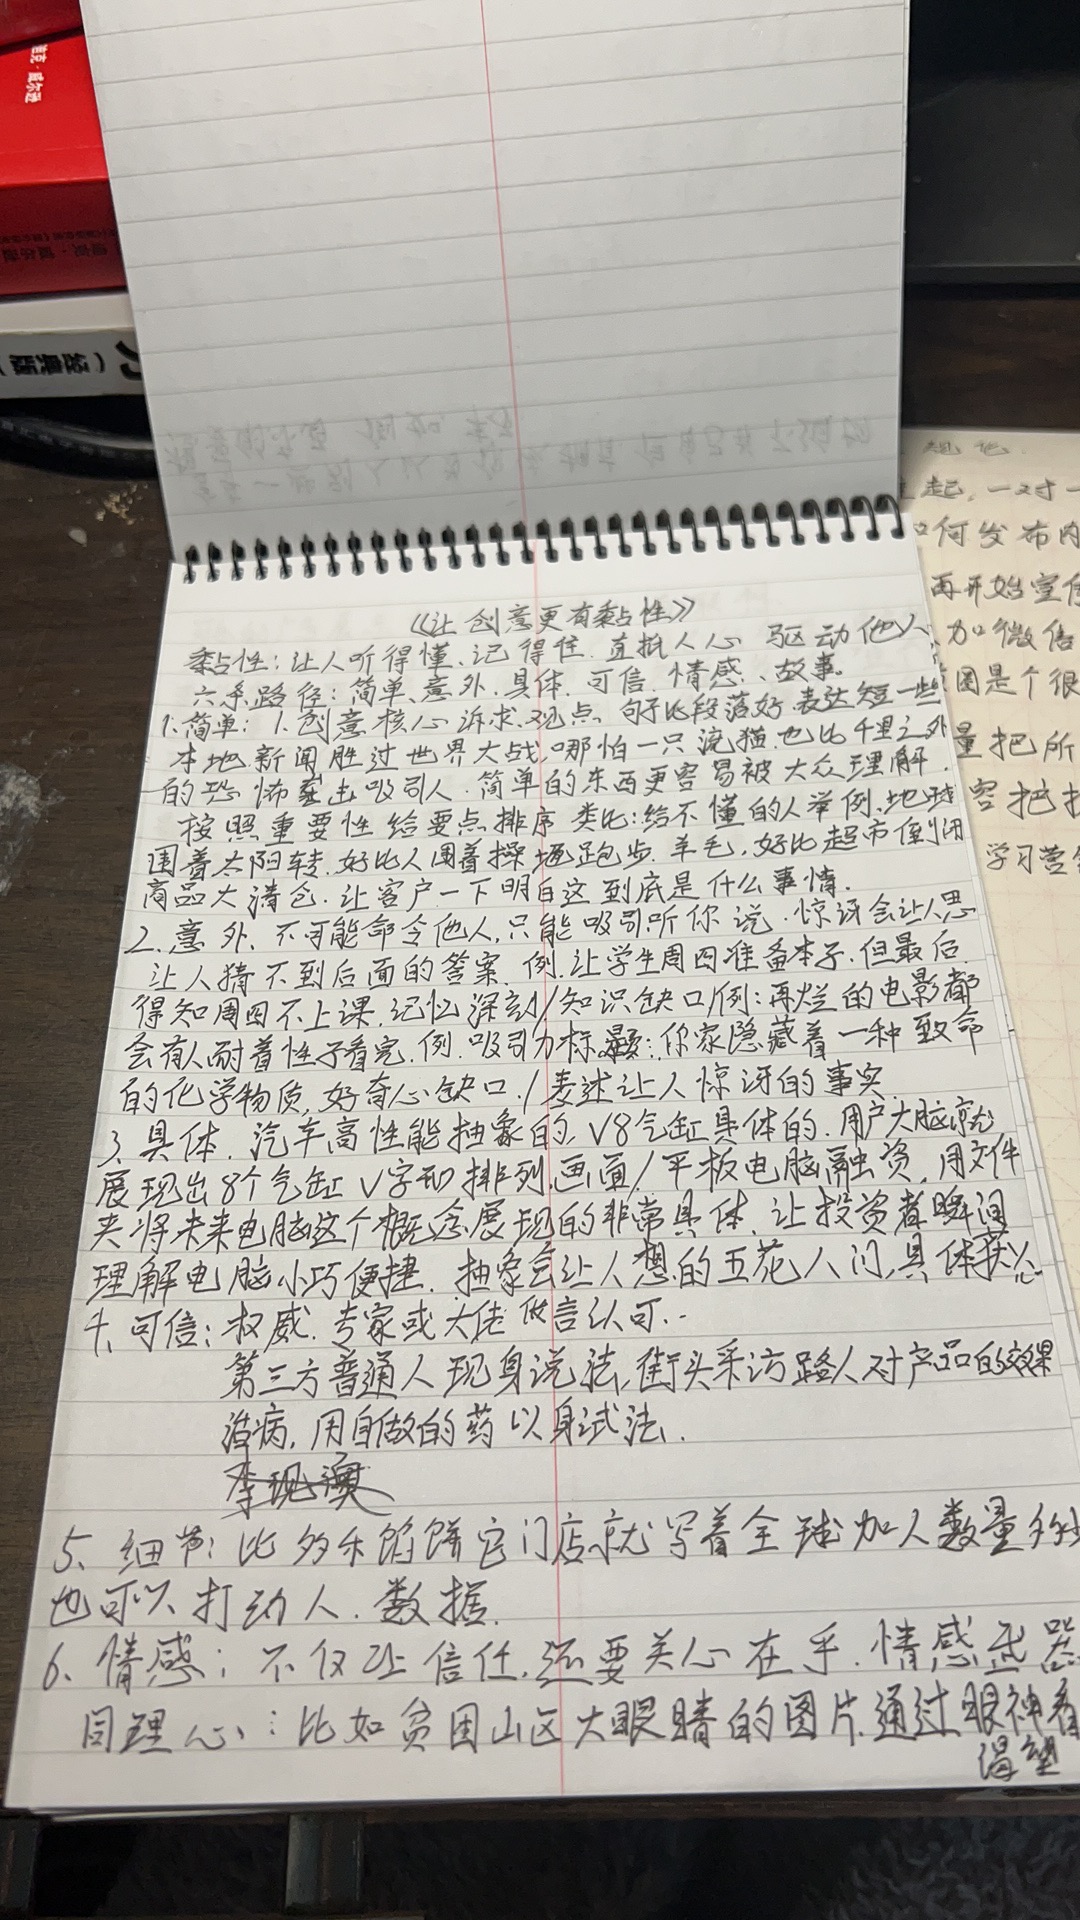 《让创意更有黏性》
黏性：让人听得懂、记得住、直抵人心 驱动他人
六条路径：简单、意外、具体、可信、情感、故事。
1.简单：1.创意核心诉求、观点、句子比段落好、表达短一些
本地新闻胜过世界大战，哪怕一只流猫，也比千里之外
的恐怖袭击吸引人．简单的东西更容易被大众理解．
按照重要性给要点排序 类比：给不懂的人举例、地球
围着太阳转．好比人围着操场跑步．羊毛，好比超市倒闭
商品大清仓．让客户一下明白这到底是什么事情．
2、意外、不可能命令他人，只能吸引听你说．惊讶会让人思
让人猜不到后面的答案．例．让学生周四准备本子．但最后
得知周四不上课．记忆深刻/知识缺口/例：再烂的电影都
会有人耐着性子看完．例．吸引力标题：你家隐藏着一种致命
的化学物质，好奇心缺口./表述让人惊讶的事实
3、具体、汽车高性能抽象的、V8气缸具体的．用户大脑就
展现出8个气缸V字形排列画面/平板电脑融资，用文件
夹将未来电脑这个概念展现的非常具体．让投资者瞬间
理解电脑小巧便捷．抽象会让人想的五花八门，具体获人心
4、可信：权威．专家或大佬做言认可..
第三方普通人现身说法，街头采访路人对产品的效果
治病，用自做的药以身试法．
5、细节：比多乐馅饼它门店就写着全球加人数量多少
也可以打动人．数据．
6、情感：不仅让信任，还要关心在乎．情感武器
同理心：比如贫困山区大眼睛的图片．通过眼神看
渴望
起，一对一
如何发布内
再开始宣传
加微信
圈是个很
量把所
容把
学习营
（经典版）